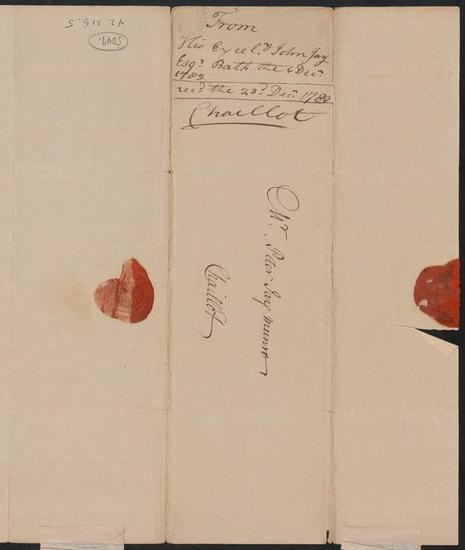 From
His Excely. John Jay
Esqr. Bath the 6 Decr.
1783
recd the 23d. Decr. 1783
Chaillot
Mr. Peter Jay Munro
Chaillot
42.315.5